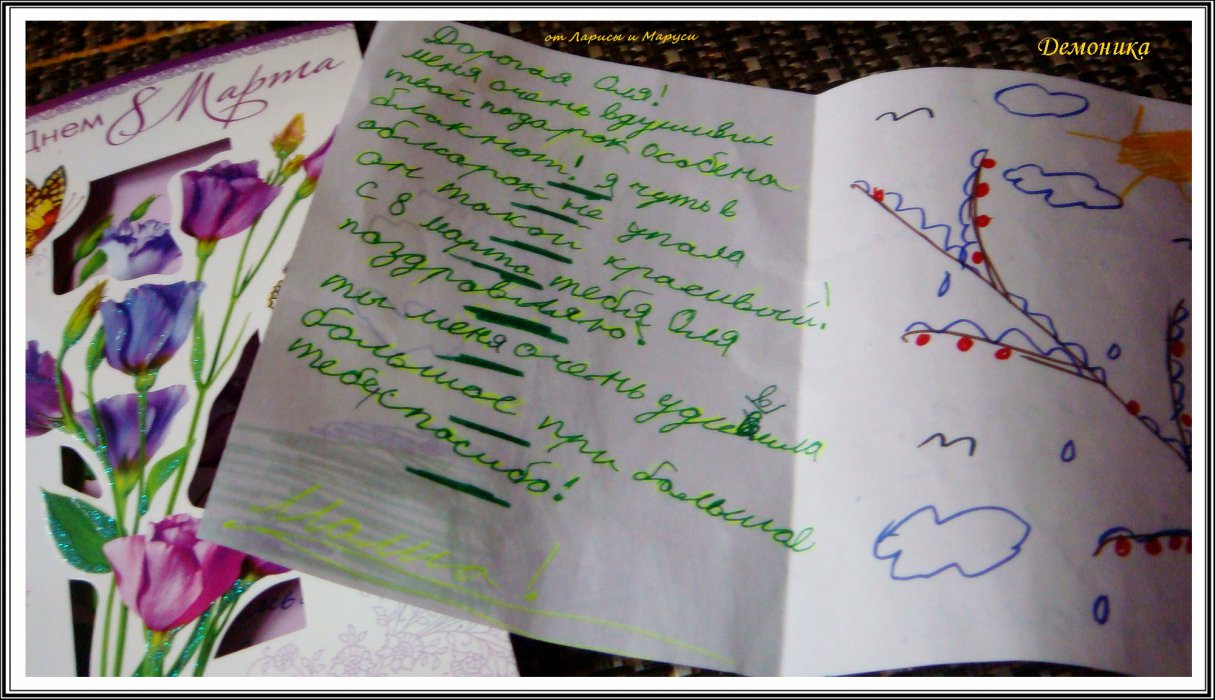 от Ларисы и Маруси
Демоника
Днем
8 Марта
Дорогая Оля!
меня очень вдушивил
твой подарок особена
блакнот! я чуть в
обмарок не упала
он такой красивый!
с 8 марта тебя Оля
поздровляю!
ты меня очень удивила
большое при большое
тебеспасибо!